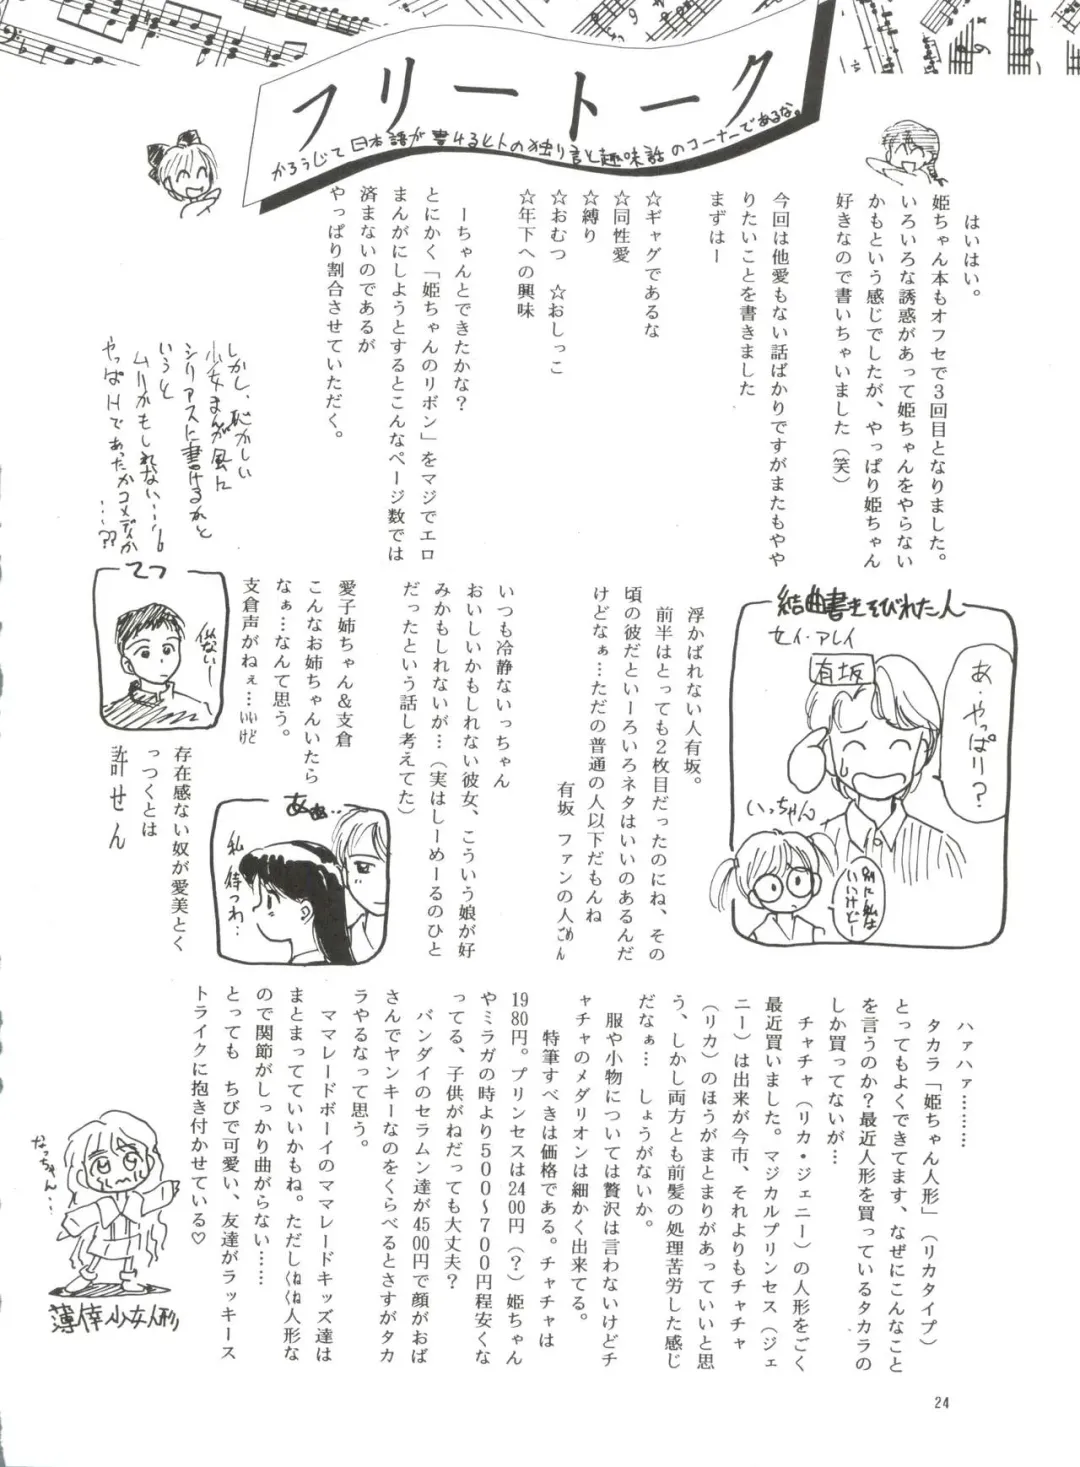 フリートーク
かろうじて日本語が書けるヒトの独り言と趣味話のコーナーであるな。
はいはい。
姫ちゃん本もオフセで3回目となりました。
いろいろな誘惑があって姫ちゃんをやらない
かもという感じでしたが、やっぱり姫ちゃん
好きなので書いちゃいました（笑）
今回は他愛もない話ばかりですがまたもやや
りたいことを書きました
まずはー
☆ギャグであるな
☆同性愛
☆縛り
☆おむつ　☆おしっこ
☆年下への興味
ーちゃんとできたかな？
とにかく「姫ちゃんのリボン」をマジでエロ
まんがにしようとするとこんなページ数では
済まないのであるが
やっぱり割合させていただく。
しかし、恥かしい
少女まんが風に
シリアスに書けるかと
いうと
ムリかもしれない……
やっぱHであったかコメディか
…??
結曲書きそびれた人
セイ・アレイ
有坂
あ・やっぱり？
いっちゃん
別に私は
いいけどー
浮かばれない人有坂。
前半はとっても2枚目だったのにね、その
頃の彼だといーろいろネタはいいのあるんだ
けどなぁ…ただの普通の人以下だもんね
有坂　ファンの人ごめん
いつも冷静ないっちゃん
おいしいかもしれない彼女、こういう娘が好
みかもしれないが…（実はしーめーるのひと
だったという話し考えてた）
愛子姉ちゃん＆支倉
こんなお姉ちゃんいたら
なぁ…なんて思う。
支倉声がねぇ…いいけど
てつ
あぁ…
私　待つわ…
存在感ない奴が愛美とく
っつくとは
許せん
ハァハァ………
タカラ「姫ちゃん人形」（リカタイプ）
とってもよくできてます、なぜにこんなこと
を言うのか？最近人形を買っているタカラの
しか買ってないが…
チャチャ（リカ・ジェニー）の人形をごく
最近買いました。マジカルプリンセス（ジェ
ニー）は出来が今市、それよりもチャチャ
（リカ）のほうがまとまりがあっていいと思
う、しかし両方とも前髪の処理苦労した感じ
だなぁ…　しょうがないか。
服や小物については贅沢は言わないけどチ
ャチャのメダリオンは細かく出来てる。
特筆すべきは価格である。チャチャは
1980円。プリンセスは2400円（？）姫ちゃん
やミラガの時より500～700円程安くな
ってる、子供がねだっても大丈夫？
バンダイのセラムン達が450円で顔がおば
さんでヤンキーなのをくらべるとさすがタカ
ラやるなって思う。
ママレードボーイのママレードキッズ達は
まとまってていいかもね。ただしくねくね人形な
ので関節がしっかり曲がらない……
とっても　ちびで可愛い、友達がラッキース
トライクに抱き付かせている♡
なっちゃん…
薄倖少女人形
24